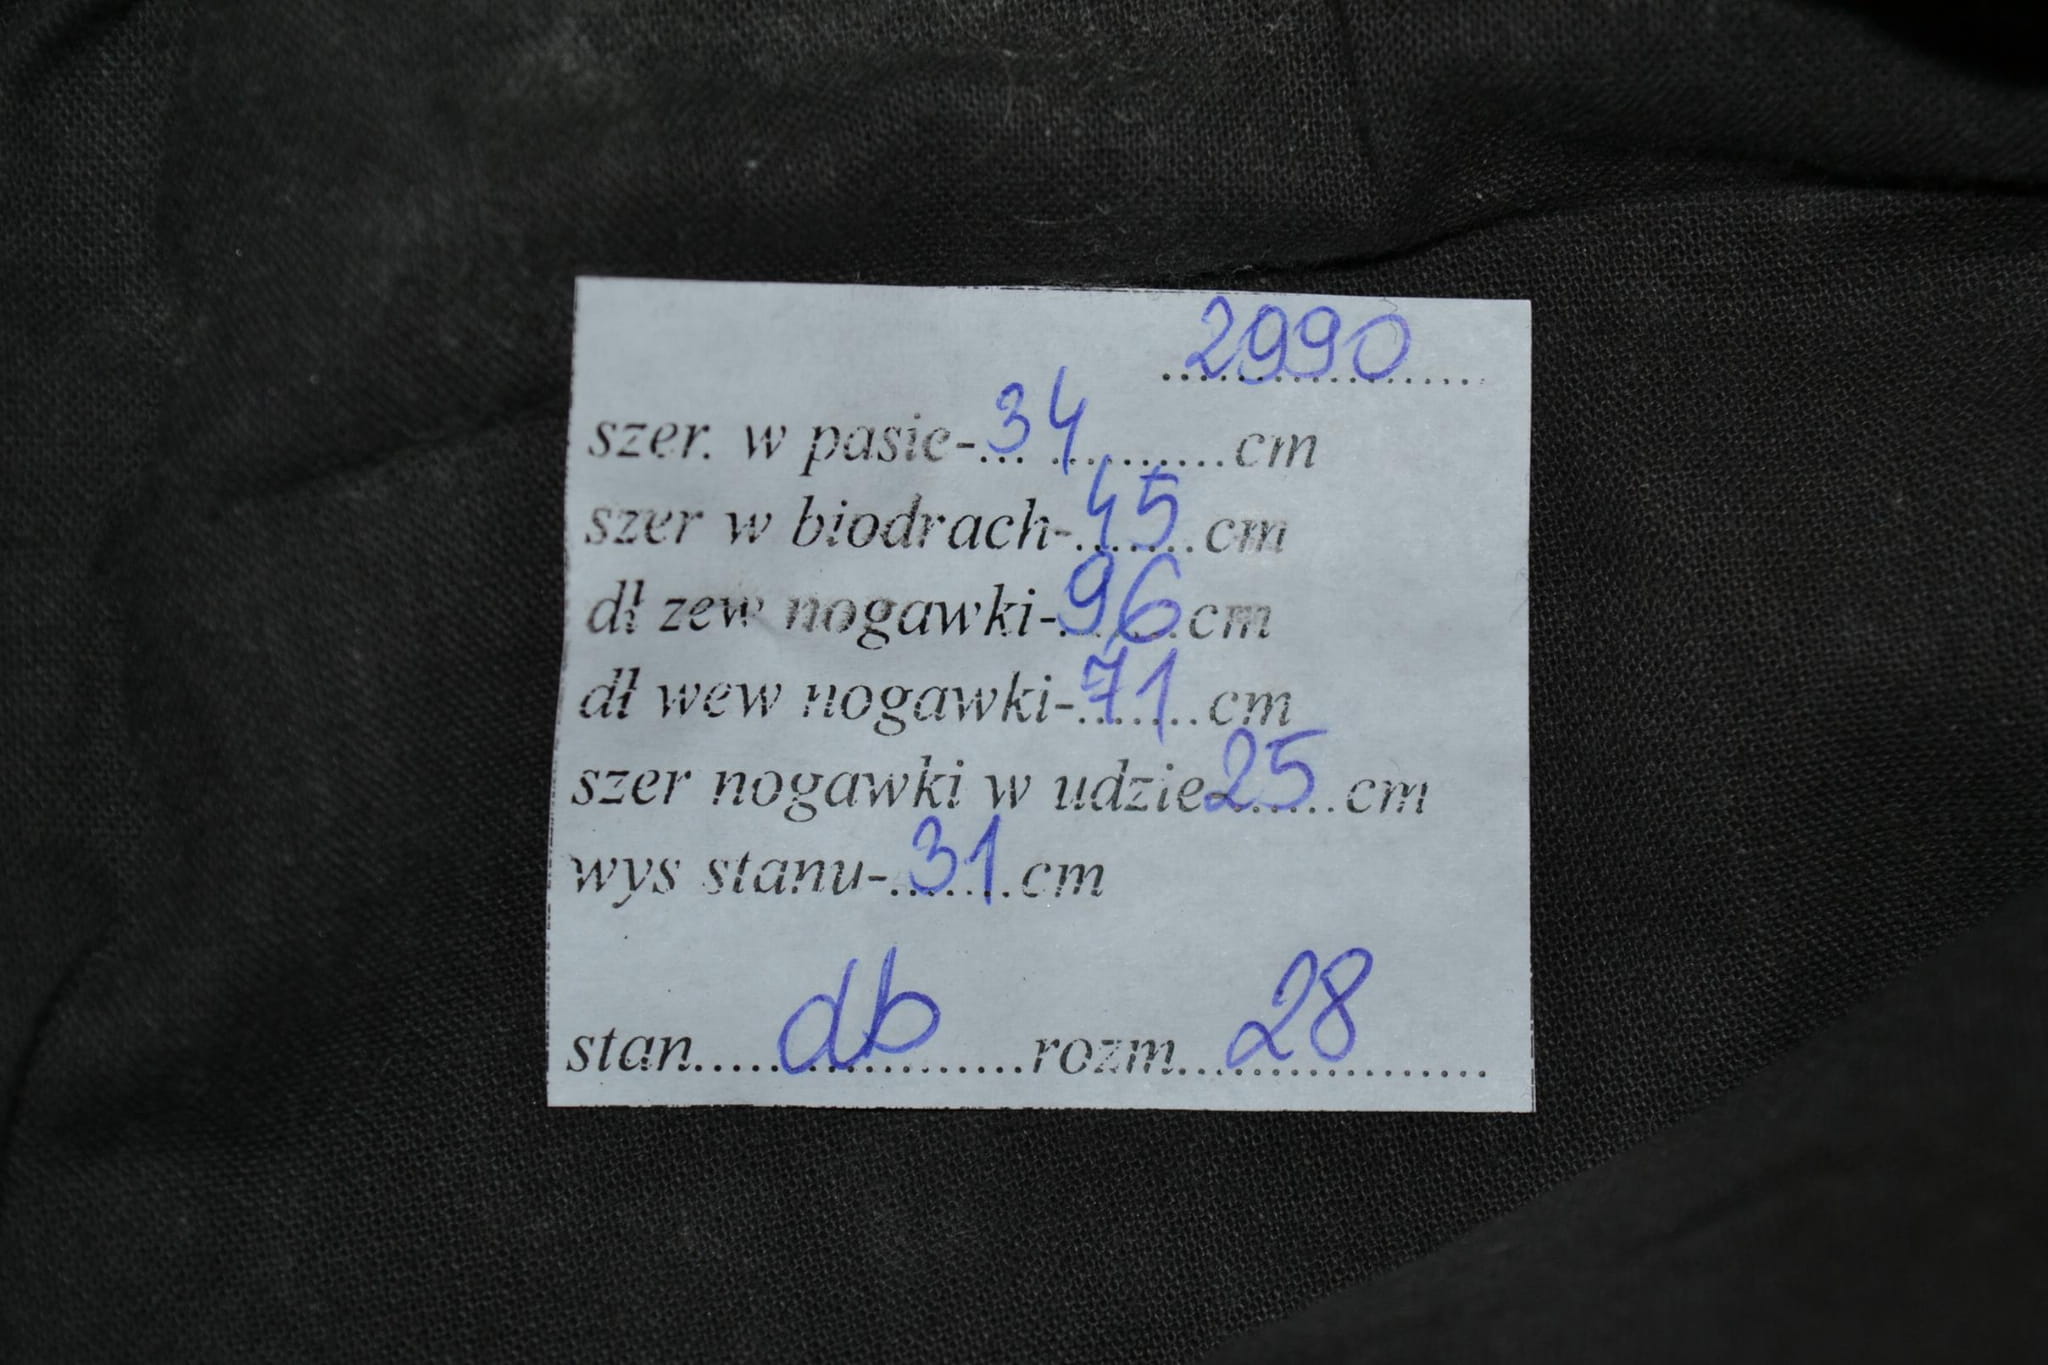 2990
szer. w pasie-34.........cm
szer w biodrach-45.cm
dł zew nogawki-96cm
dł wew nogawki-71..cm
szer nogawki w udzie25....cm
wys stanu-.31.cm
stan....db.........rozm..28.......